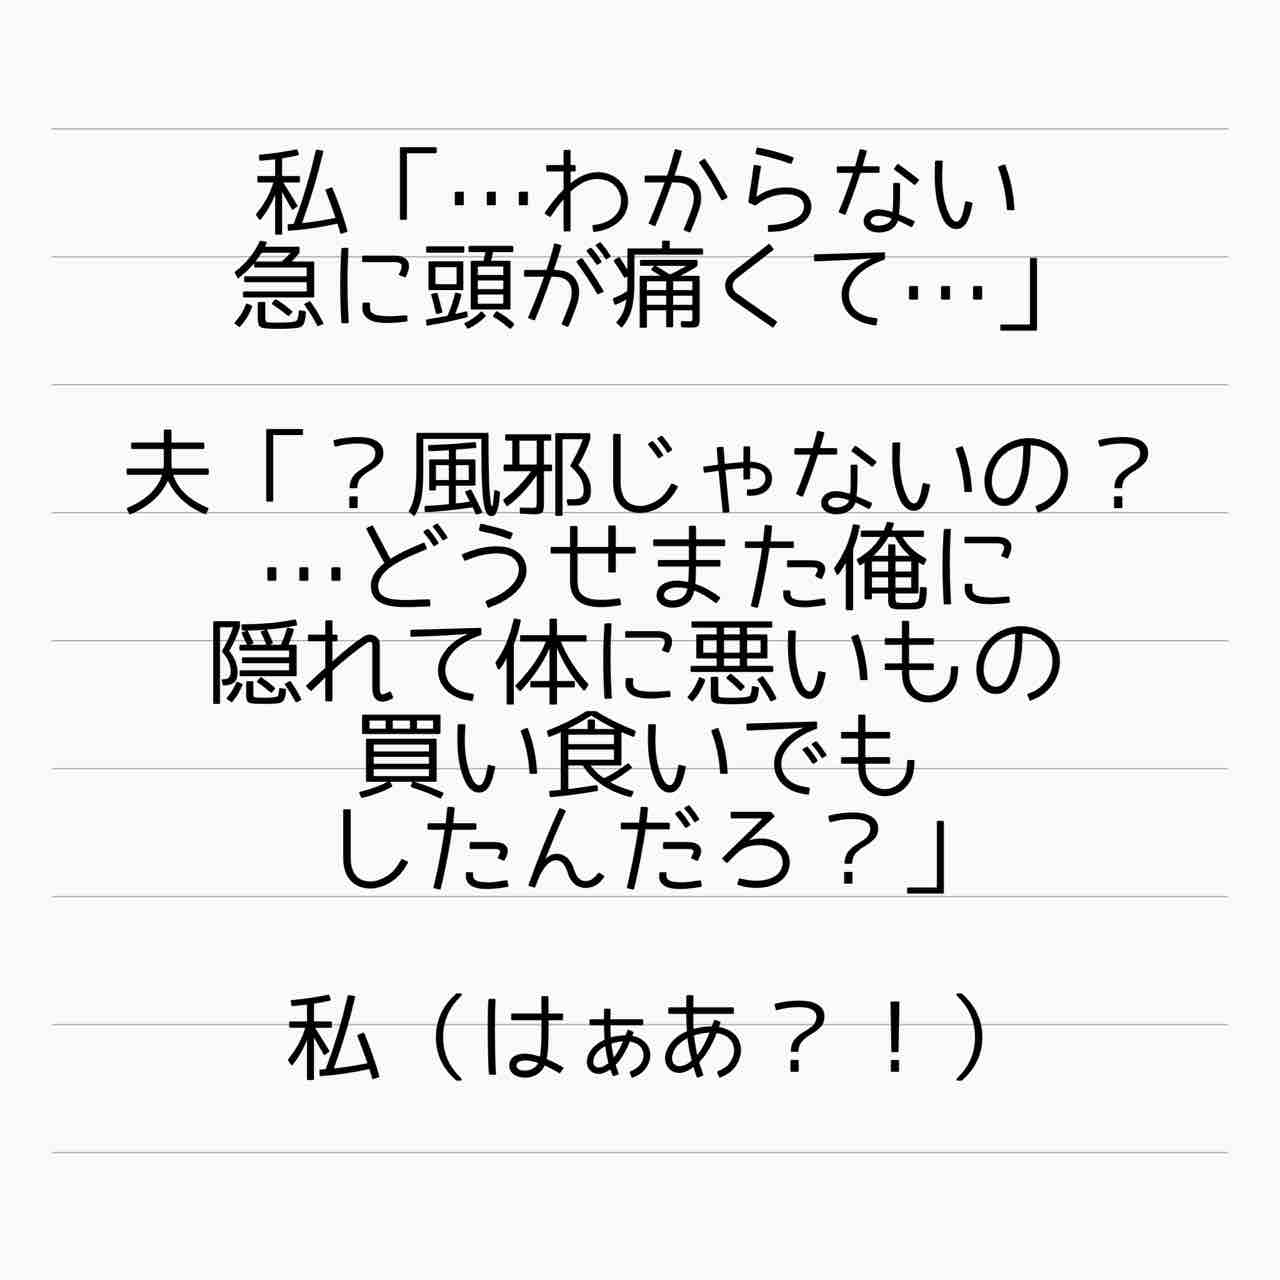 私「…わからない
急に頭が痛くて…」
夫「？風邪じゃないの？
…どうせまた俺に
隠れて体に悪いもの
買い食いでも
したんだろ？」
私（はぁあ？！）